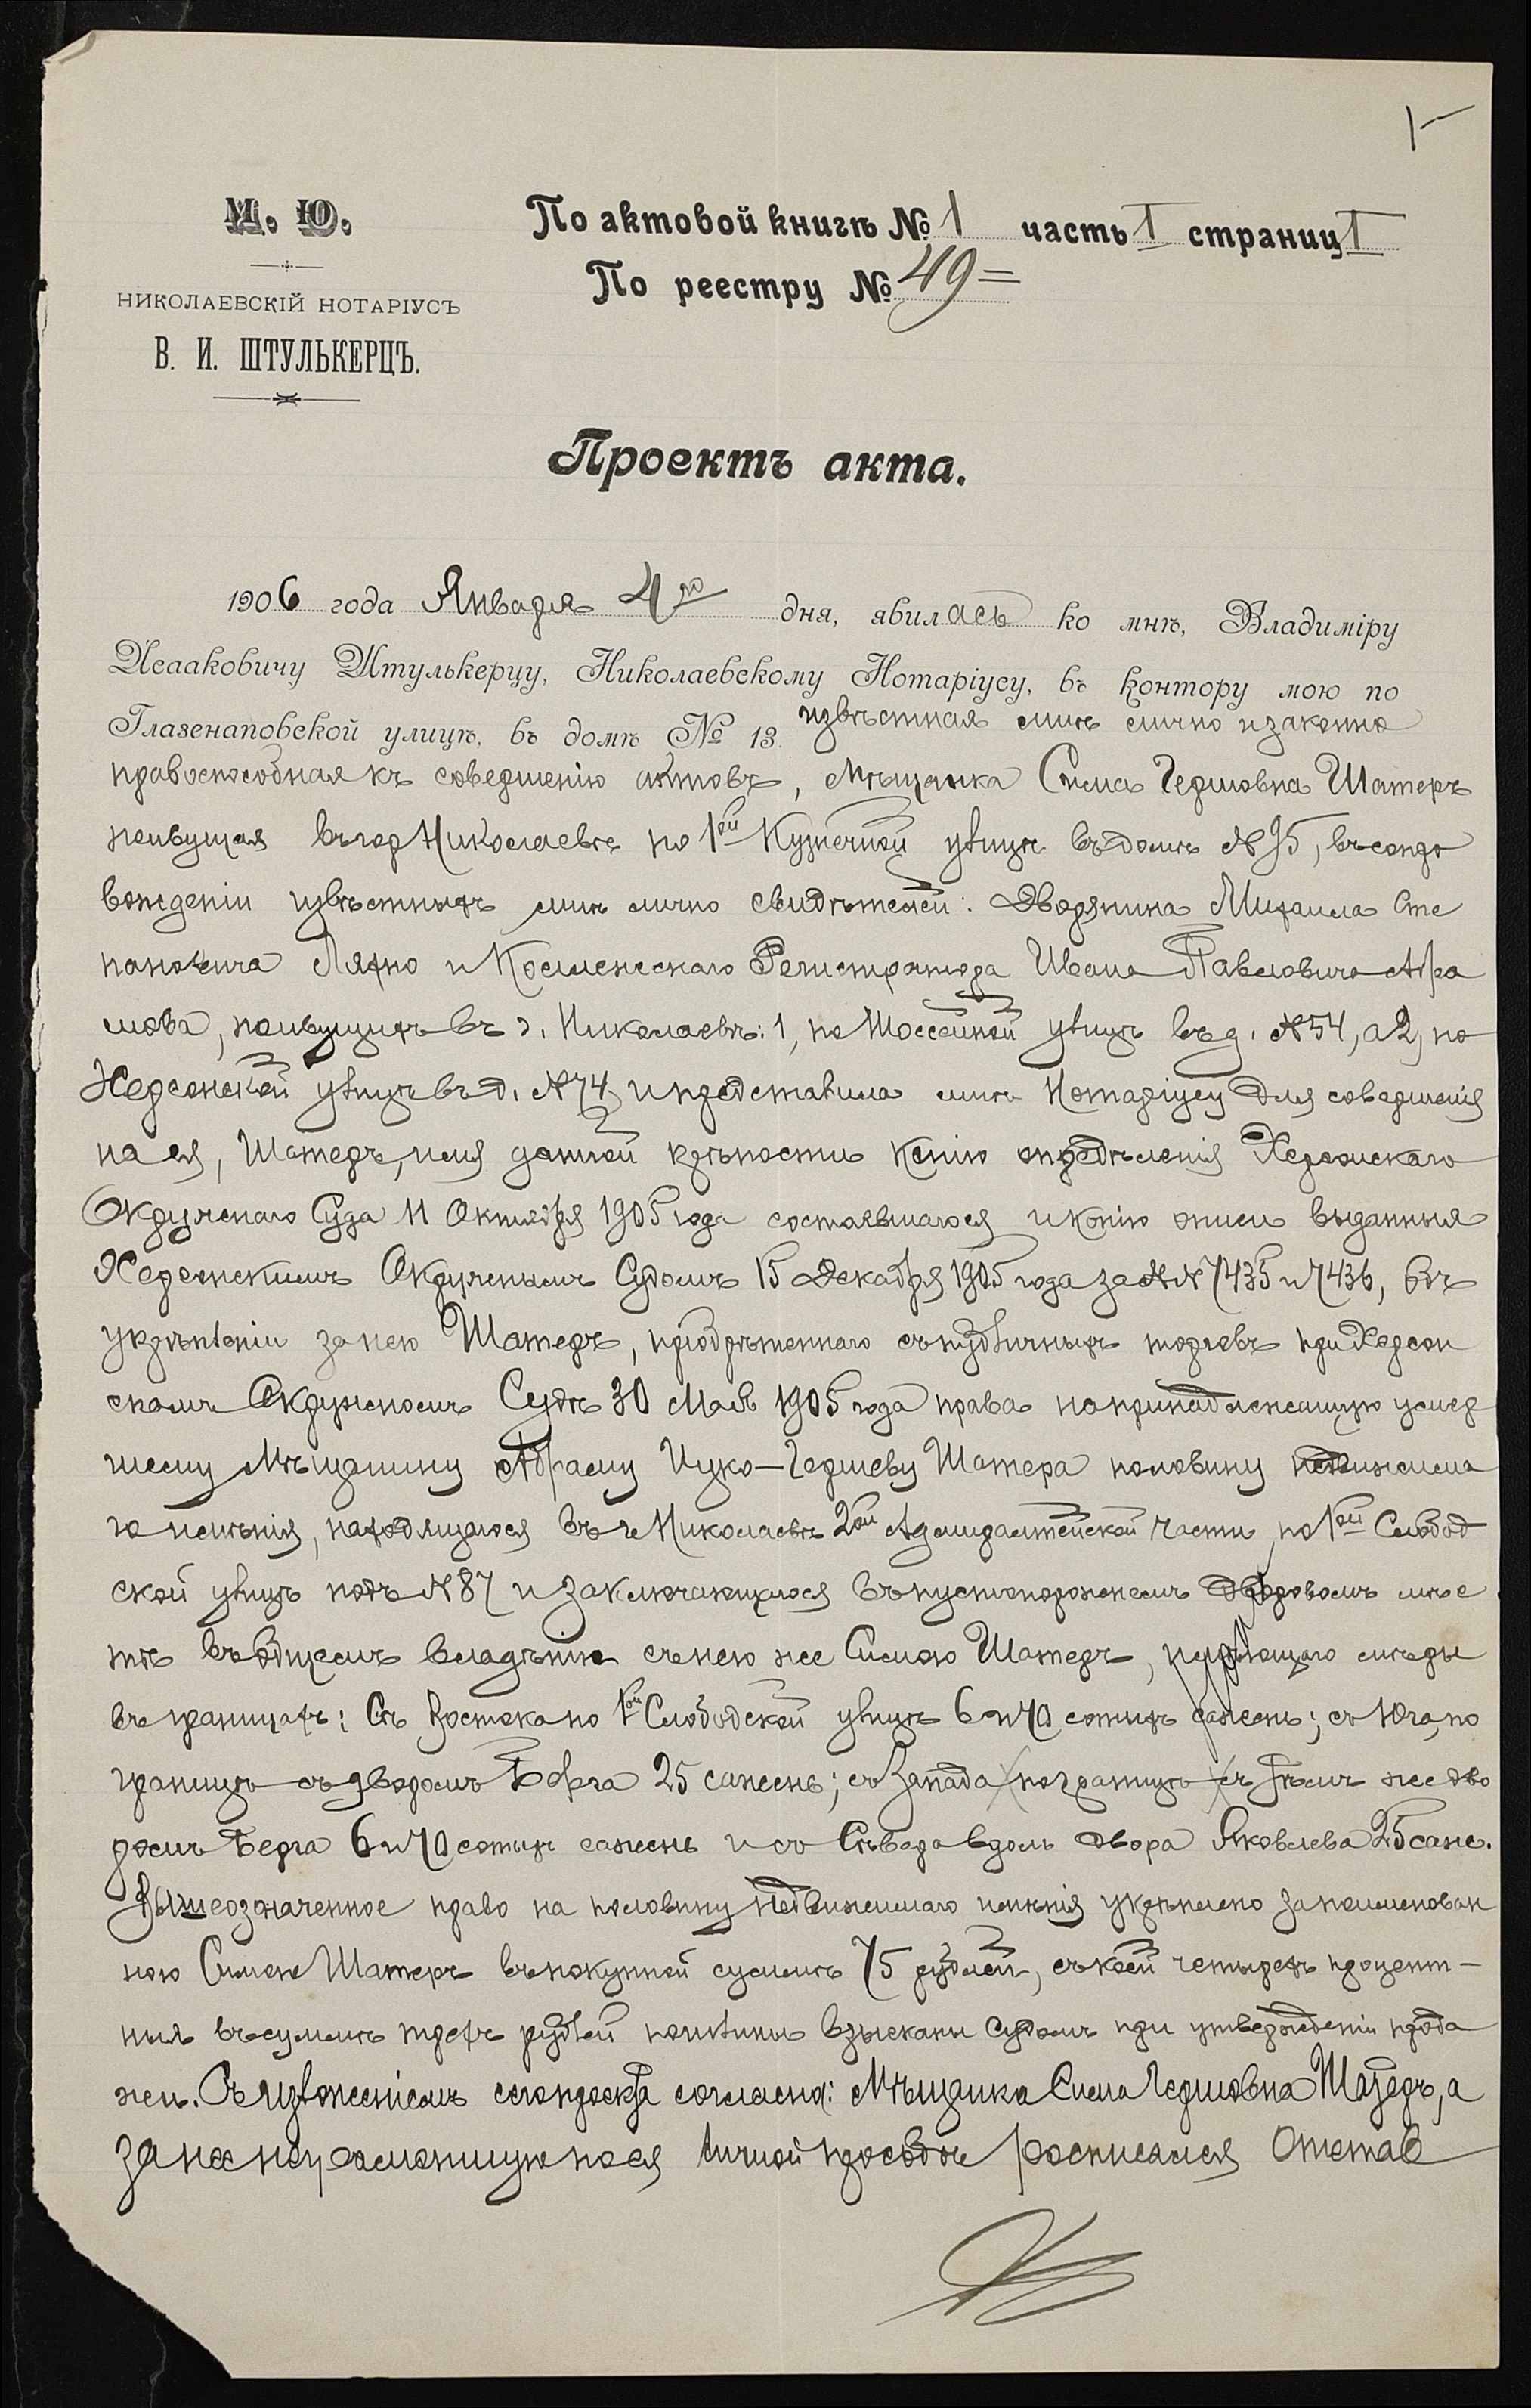 М. Ю.
НИКОЛАЕВСКІЙ НОТАРІУСЪ
В. И. ШТУЛЬКЕРЦЪ.
По актовой книгѣ № 1 часть I страниц I
По реестру № 49=
Проектъ акта.
1906 года Января 4го дня, явилась ко мнѣ, Владиміру
Исааковичу Штулькерцу, Николаевскому Нотаріусу, въ контору мою по
Глазенаповской улицѣ, въ домѣ № 13. извѣстная мнѣ лично и законно
правоспособная къ совершенію актовъ, Мѣщанка Сима Гершовна Шатеръ
живущая въ гор Николаевѣ по 1ой Кузнечной улицѣ въ домѣ № 95, въ сопро
вожденіи извѣстныхъ мнѣ лично свидѣтелей: Дворянина Михаила Сте
пановича Ляхно и Коллежскаго Регистратора Ивана Павловича Абра
мова, живущихъ въ г. Николаевѣ: 1, по Шоссейной улицѣ въ д. № 54, а 2, по
Херсонской улицѣ въ д. № 74 и представила мнѣ Нотаріусу для совершенія
на ея, Шатеръ, имя данной крѣпости копію опредѣленія Херсонскаго
Окружнаго Суда 11 Октября 1905 года состоявшагося и копію описи выданныя
Херсонскимъ Окружнымъ Судомъ 15 Декабря 1905 года за №№ 7435 и 7436, объ
укрѣпленіи за нею Шатеръ, пріобрѣтеннаго съ публичныхъ торговъ при Херсон
скомъ Окружномъ Судѣ 30 Мая 1905 года права на принадлежащую умер
шему Мѣщанину Абраму Ицко-Гершеву Шатера половину недвижима
го имѣнія, находящагося въ г Николаевѣ 2ой Адмиралтейской части, по 1ой Слобод
ской улицѣ подъ № 87 и заключающагося въ пустопорожнемъ дворовомъ мѣс
тѣ въ общемъ владѣніи съ нею же Симою Шатеръ, мѣры
въ границахъ: Съ Востока по 1ой Слободской улицѣ 6 и 70 сотыхъ сажень; съ Юга, по
границѣ съ дворомъ Берга 25 сажень; съ Запада по границѣ съ тѣмъ же дво
ромъ Берга 6 и 70 сотыхъ сажень и съ Сѣвера вдоль двора Яковлева 25 саж.
Вышеозначенное право на половину недвижимаго имѣнія укрѣплено за поименован
ною Симою Шатеръ въ покупной суммѣ 75 рублей, съ коей четырехъ процент-
ныя въ суммѣ трехъ рублей пошлины взысканы Судомъ при утвержденіи прода
жи. Съ изложеніемъ сего проекта согласна: Мѣщанка Сима Гершовна Шатеръ, а
за нее неграмотную по ея личной просьбѣ росписался Отстав